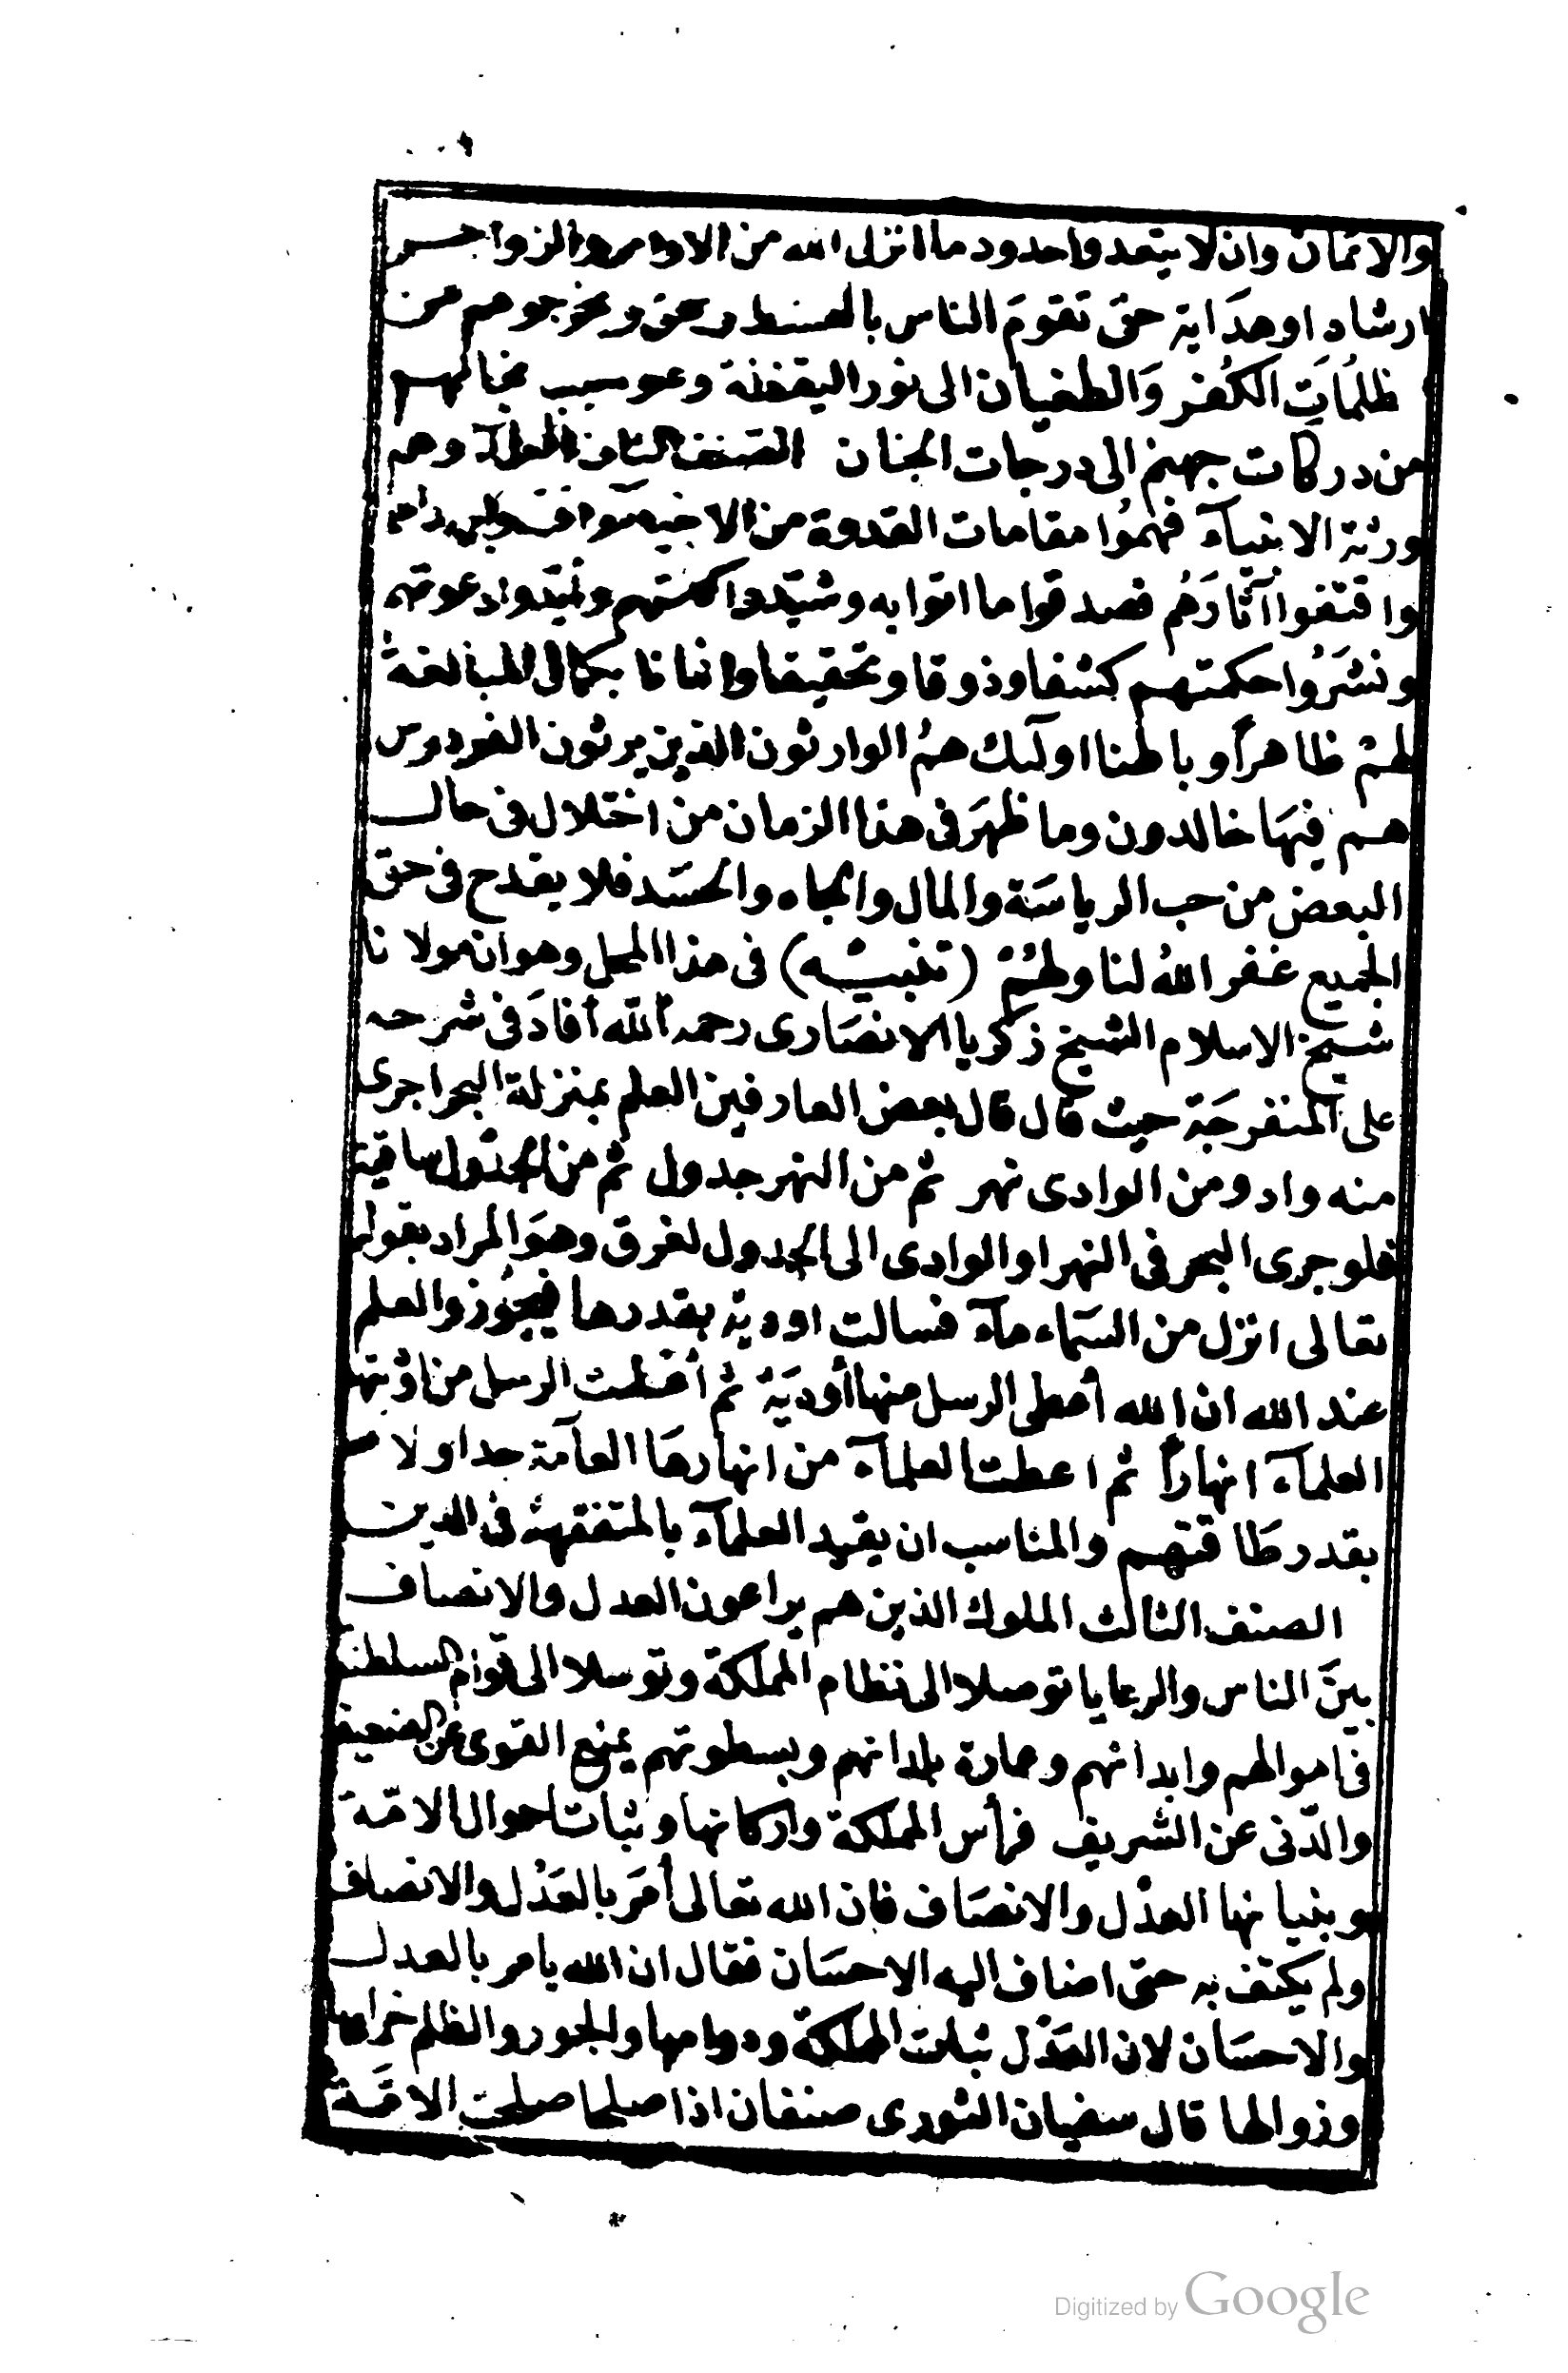 والايمان وان لا يتعدوا حدود ما انزل الله من الاوامر والزواجر
ارشاد او هدَاية حتى تقومَ الناس بالقسط وحتى يخرجوهم من
ظلمُات الكُفر وَالطغيان الى نور اليقظة وهو سبب نجاتهم
من دركات جهنم الى درجات الجنان الصنف الثانى العلمآء وهم
ورثة الانبيآء فهمُوا مقامات القدوة من الانبيآء
واقتفوا آثارَهُم فصدقوا ما اتوا به وشيّدوا كلمتهم وايّدوا دعوتهم
ونشَرُوا حكمتهم كشفا وذوقا وتحقيقا وايمانا بكمال المبالغة
لهمْ ظاهراً وباطنا اولٓئك همُ الوارثون الذين يرثون الفردوس
هم فيهَا خالدون وما ظهرَ فى هذا الزمان من اختلال فى حال
البعض من حب الرياسَة والمال والجاه والحسَد فلا يقدح فى حق
الجميع غفر اللهُ لنا ولهُمْ (تنبيه) فى هذا المحل وهو ان مولانا
شيخ الاسلام الشيخ زكريا الانصَارى رحمه اللّه أفادَ فى شرحه
على المنفرجَة حيث قال قال بعض العارفين العلم بمنزلة البحر اجرى
منه واد ومن الوادى نهر ثم من النهر جدول ثم من الجدول ساقية
فلو جرى البحر فى النهر او الوادى الى الجدول لغرق وهوَ المراد بقوله
تعالى انزل من السمَاء مآء فسالت اودية بقدرها فبحُور العلم
عند الله ان الله أعطى الرسل منها أودَيةً ثم أعطت الرسل من اوديتها
العلمآء انهاراً ثم اعطت العلمآء من انهارهَا العآمة جداولا
بقدر طَاقتهم والمناسب ان يقيد العلمآء بالمتفقهة فى الدين
الصنف الثالث الملوك الذين هم يراعون العدل والانصاف
بينَ الناس والرعايا توصلا الى نظام المملكة وتوسلا الى قوام السلطنة
فى اموالهم وابدانهم وعمارة بلدانهم وبسطوتهم يمنع القوى عن الضعيف
والدّنى عن الشريف فرأس المملكة واركانها وثبات احوال الامّة
وبنيانها العدْل والانصَاف فان الله تعالى أمَر بالعَدْل والانصاف
ولم يكتف به حتى اضاف اليه الاحسَان فقال ان الله يامر بالعدل
والاحسَان لان العَدْل ثبات المملكة ودوامها والجور والظلم خرابها
وزوالها قال سفيان الثورى صنفان اذا صلحا صلحت الامّة
Digitized by Google